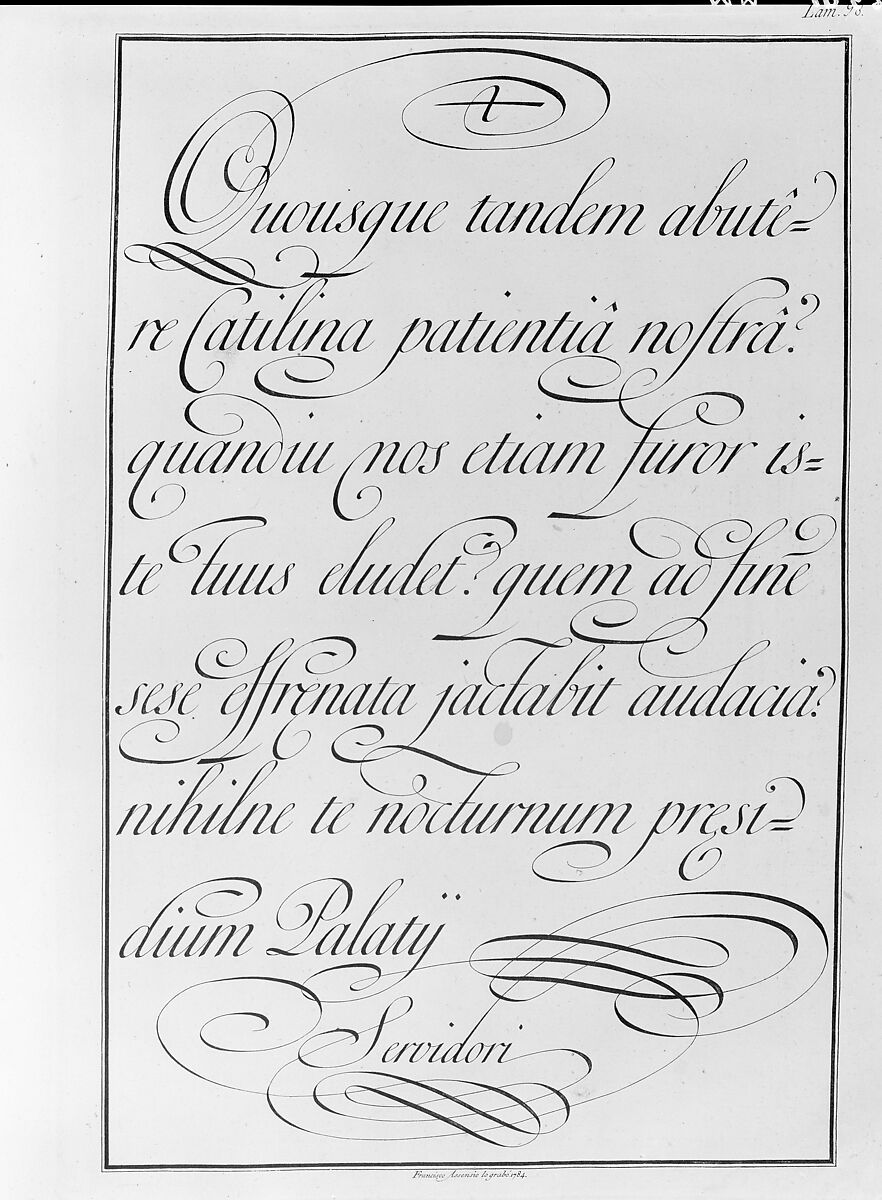 Lam. 98.
Quousque tandem abutê=
re Catilina patientiâ noſtrâ?
quandiu nos etiam furor is=
te tuus eludet? quem ad finē
sese effrenata jactabit audacia?
nihilne te nocturnum pręsi=
dium Palatÿ
Servidori
Francisco Assensio lo grabó 1784.